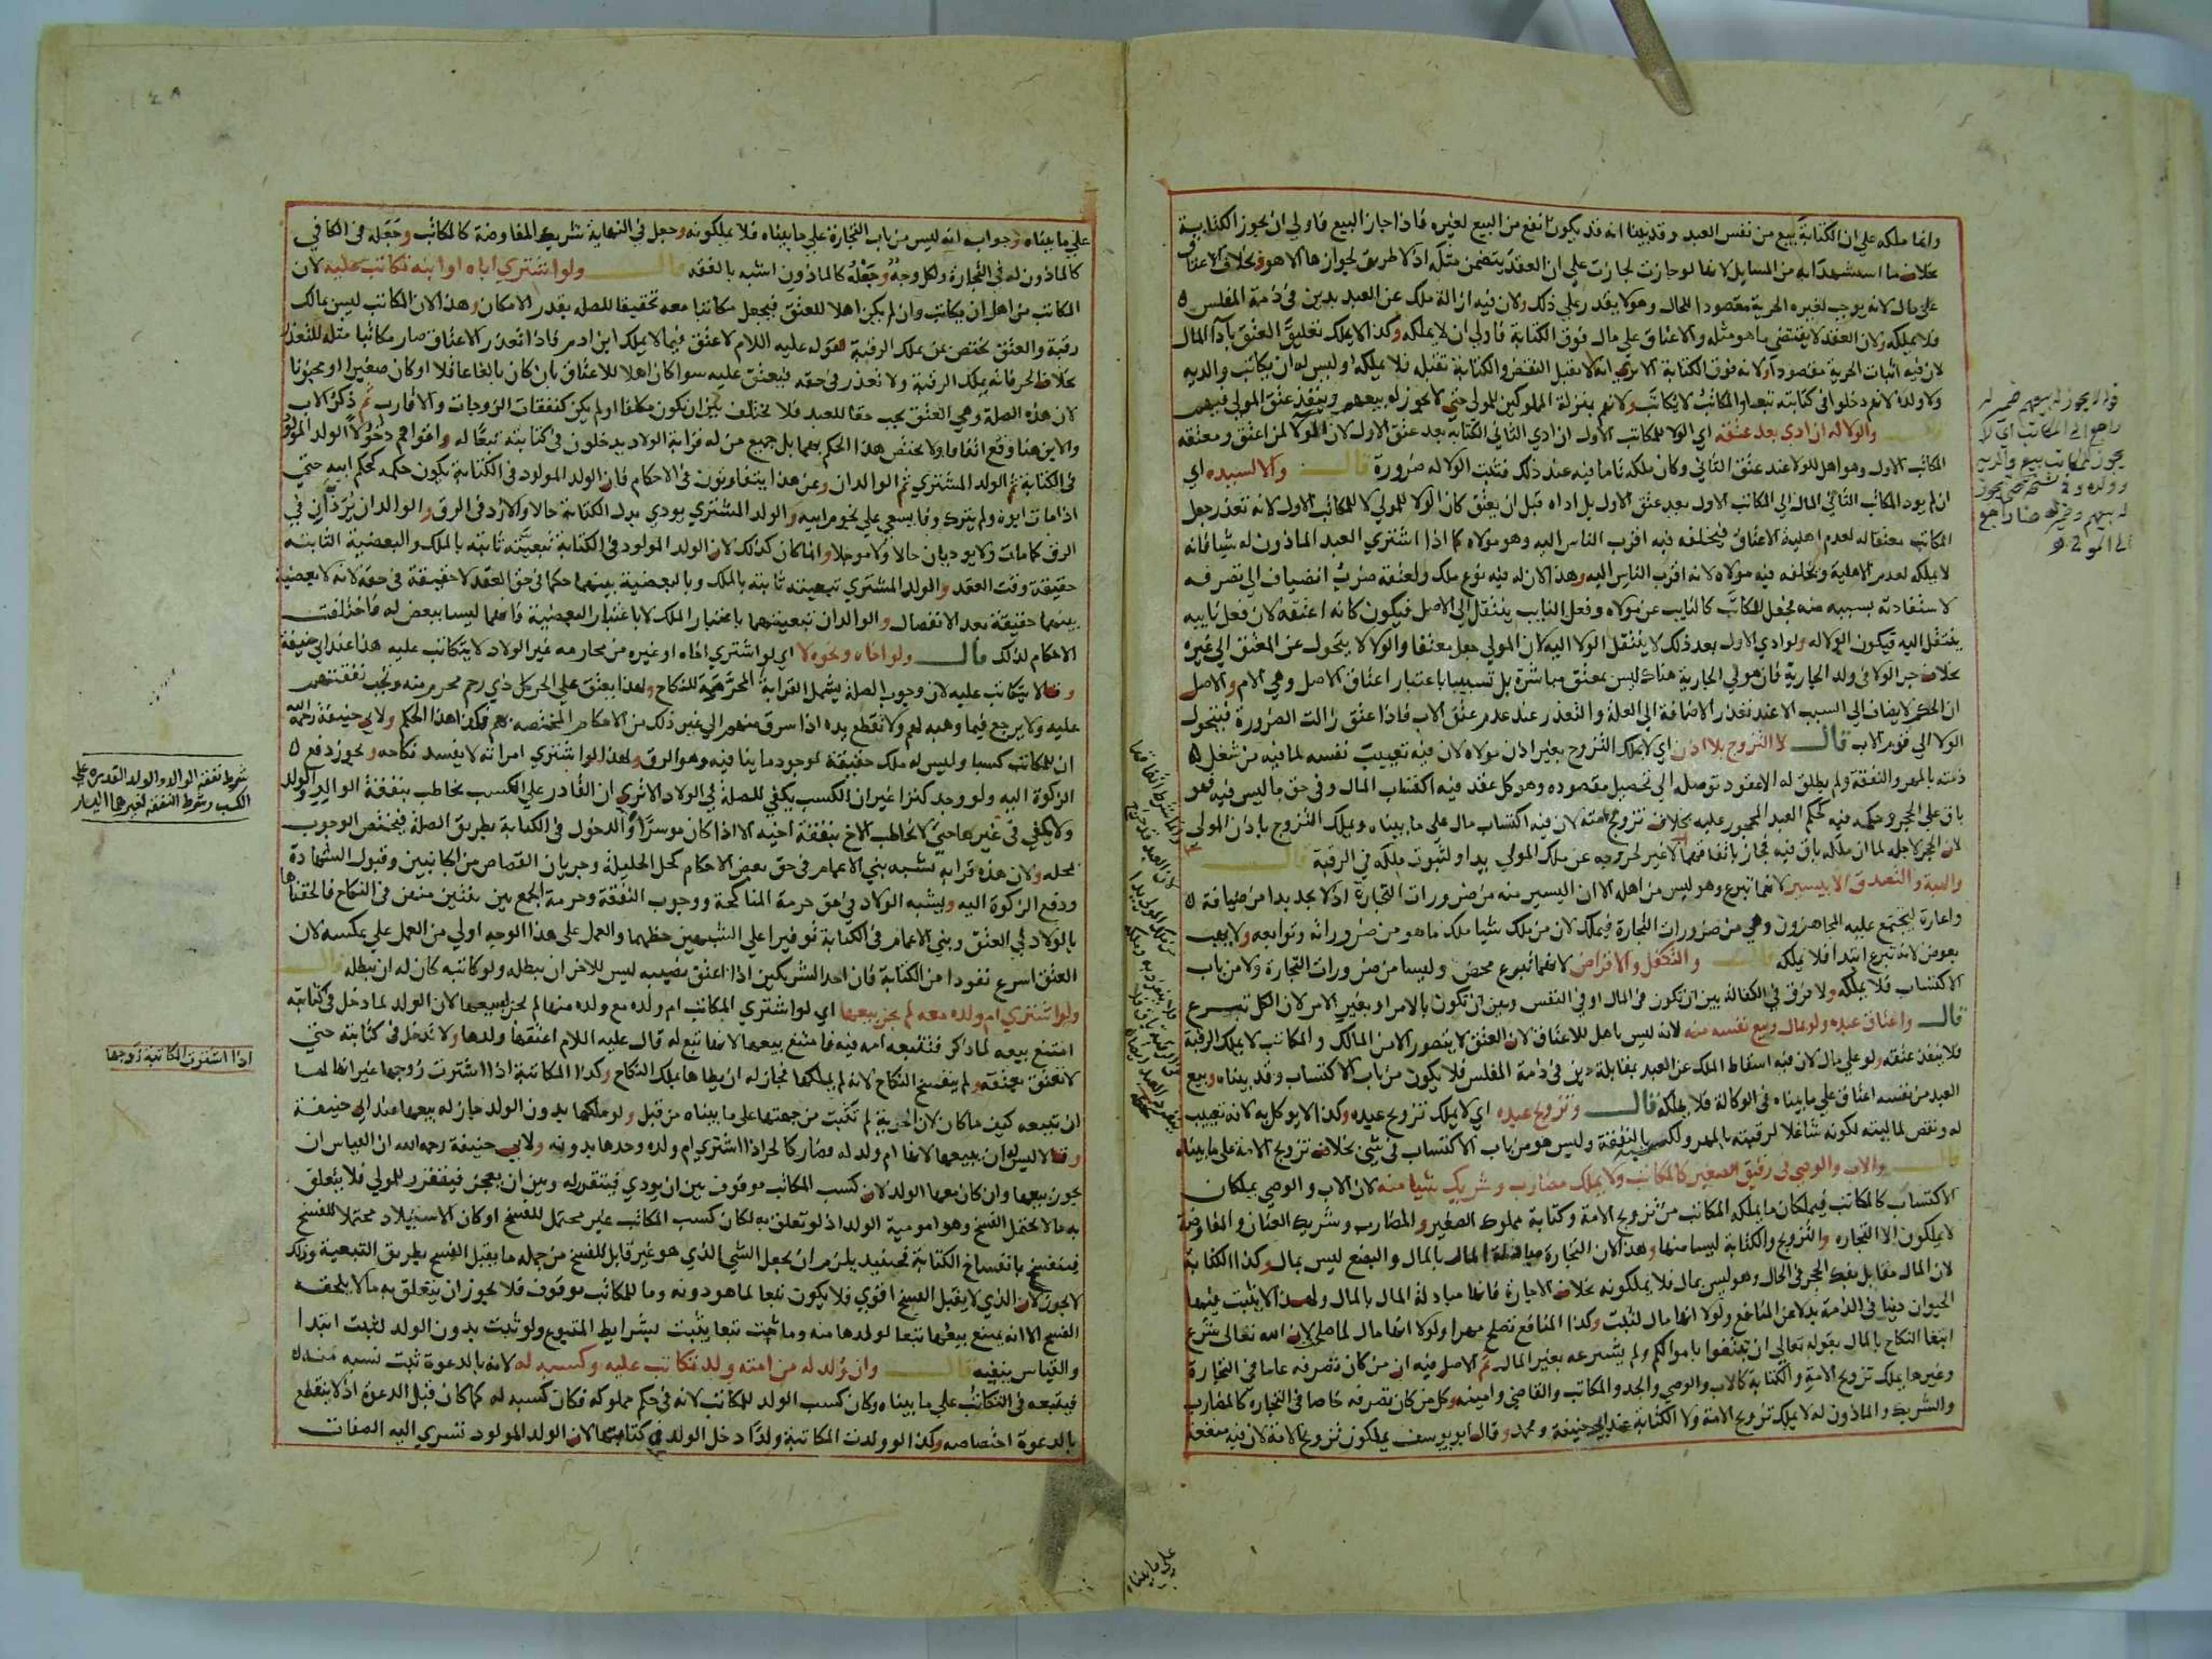 وانما ملكه علي ان الكتابة بيع من نفس العبد وقد بينا انه قد يكون انفع من البيع لغيره فاذا جاز البيع فاولي ان يجوز الكتابة
بخلاف ما استشهدا به من المسايل لانها لو جازت لجازت علي ان العقد يتضمن مثله اذ لا طريق لجوازها الا هو وبخلاف الاعتاق
علي مال لانه يوجب لغيره الحرية مقصودا للحال وهو لا يقدر علي ذلك ولان فيه ازالة ملك عن العبد بدين في ذمة المفلس
فلا يملكه ولان العقد لا يقتضي ما هو مثله والاعتاق علي مال فوق الكتابة فاولي ان لا يملكه وكذا لا يملك تعليق العتق بادآ المال
لان فيه اثبات الحرية مقصودا ولانه فوق الكتابة الا تري انه لا يقبل النقض والكتابة تقبله فلا يملكه وليس له ان يكاتب والديه
ولا ولده لانهم دخلوا في كتابته تبعا والمكاتب لا يكاتب ولانهم بمنزلة المملوكين للمولي حتي لا يجوز له بيعهم وينفذ عتق المولي فيهم
قال والولا له ان ادي بعد عتقه اي الولا للمكاتب الاول ان ادي الثاني الكتابة بعد عتق الاول لان الولا لمن اعتق ومعتقه
المكاتب الاول وهو اهل للولا عند عتق الثاني وكان ملكه تاما فيه عند ذلك فتثبت الولا له ضرورة قال والا لسيده اي
ان لم يود المكاتب الثاني المال الي المكاتب الاول بعد عتق الاول بل اداه قبل ان يعتق كان الولا للمولي لا للمكاتب الاول لانه تعذر جعل
المكاتب معتقا له لعدم اهلية الاعتاق فيخلفه فيه اقرب الناس اليه وهو مولاه كما اذا اشتري العبد الماذون له شيا فانه
لا يملكه لعدم الاهلية ويخلفه فيه مولاه لانه اقرب الناس اليه وهذا لان له فيه نوع ملك ولعتقه ضرب انضياف الي تصرفه
لاستفادته بسببه منه فجعل المكاتب كالنايب عن مولاه وفعل النايب ينتقل الي الاصل فيكون كانه اعتقه لان فعل نايبه
ينتقل اليه فيكون الولا له ولو ادي الاول بعد ذلك لا ينتقل الولا اليه لان المولي جعل معتقا والولا لا يتحول عن المعتق الي غيره
بخلاف جر الولا في ولد الجارية فان مولي الجارية هناك ليس بمعتق مباشرة بل تسبيبا باعتبار اعتاق الاصل وهي الام والاصل
ان الحكم لا يضاف الي السبب الا عند تعذر الاضافة الي العلة والتعذر عند عدم عتق الاب فاذا عتق زالت الضرورة فيتحول
الولا الي قوم الاب قال لا التزوج بلا اذن اي لا يملك التزوج بغير اذن مولاه لان فيه تعييب نفسه لما فيه من شغل
ذمته بالمهر والنفقة ولم يطلق له الا عقود توصله الي تحصيل مقصوده وهو كل عقد فيه اكتساب المال وفي حق ما ليس فيه فهو
باق علي الحجر وحكمه فيه كحكم العبد المحجور عليه بخلاف تزويج امته لان فيه اكتساب مال علي ما بيناه ويملك التزوج باذن المولي
لان الحجر لاجله لما ان ملكه باق فيه فجاز باتفاقهما لا غير لخروجه عن ملك المولي يدا ولثبوت ملكه في الرقبة قال
والهبة والتصدق الا بيسير لانهما تبرع وهو ليس من اهله الا ان اليسير منه من ضرورات التجارة اذ لا يجد بدا من ضيافة
واعارة ليجتمع عليه المجاهزون وهي من ضرورات التجارة فيملك لان من ملك شيا ملك ما هو من ضروراته وتوابعه ولا يهب
بعوض لانه تبرع ابتدا فلا يملكه قال والتكفل والاقراض لانهما تبرع محض وليسا من ضرورات التجارة ولا من باب
الاكتساب فلا يملكه ولا فرق في الكفالة بين ان تكون في المال او في النفس وبين ان تكون بالامر او بغير الامر لان الكل تبرع
قال واعتاق عبده ولو بمال وبيع نفسه منه لانه ليس باهل للاعتاق لان العتق لا يتصور الا من المالك والمكاتب لا يملك الرقبة
فلا ينفذ عتقه ولو علي مال لان فيه اسقاط الملك عن العبد بمقابلة دين في ذمة المفلس فلا يكون من باب الاكتساب وقد بيناه وبيع
العبد من نفسه اعتاق علي ما بيناه في الوكالة فلا يملكه قال وتزويج عبده اي لا يملك تزويج عبده وكذا لا يوكل به لانه تعييب
له ونقص لماليته لكونه شاغلا لرقبته بالمهر ولكسبه بالنفقة وليس هو من باب الاكتساب في شيي بخلاف تزويج الامة علي ما بيناه
قال والاب والوصي في رقيق الصغير كالمكاتب ولا يملك مضارب وشريك شيا منه لان الاب والوصي يملكان
الاكتساب كالمكاتب فيملكان ما يملكه المكاتب من تزويج الامة وكتابة مملوك الصغير والمضارب وشريك العنان والمفاوضة
لا يملكون الا التجارة والتزويج والكتابة ليسا منها وهذا لان التجارة مبادلة المال بالمال والبضع ليس بمال وكذا الكتابة
لان المال مقابل بفك الحجر في الحال وهو ليس بمال فلا يملكونه بخلاف الاجارة فانها مبادلة المال بالمال ولهذا لا يثبت فيهما
الحيوان دينا في الذمة بدلا عن المنافع ولولا انها مال لثبت وكذا المنافع تصلح مهرا ولولا انها مال لما صلح لان الله تعالي شرع
ابتغا النكاح بالمال بقوله تعالي ان تبتغوا باموالكم ولم يشترعه بغير المال ثم الاصل فيه ان من كان تصرفه عاما في التجارة
وغيرها يملك تزويج الامة والكتابة كالاب والوصي والجد والمكاتب والقاضي وامينه وكل من كان تصرفه خاصا في التجارة كالمضارب
والشريك والماذون له لا يملك تزويج الامة ولا الكتابة عند ابي حنيفة ومحمد وقال ابو يوسف يملكون تزويج الامة لان فيه منفعة
قوله لا يجوز له بيعهم ضمير له
راجع الي المكاتب اي لا
يجوز للمكاتب بيع والديه
وولده
علي ما بيناه
علي ما بيناه وجوابه انه ليس من باب التجارة علي ما بيناه فلا يملكونه وجعل في النهاية شريك المفاوضة كالمكاتب وجعله في الكافي
كالماذون له في التجارة ولكل وجه وجعله كالماذون اشبه بالفقه قال ولو اشتري اباه او ابنه تكاتب عليه لان
المكاتب من اهل ان يكاتب وان لم يكن اهلا للعتق فيجعل مكاتبا معه تحقيقا للصلة بقدر الامكان وهذا لان المكاتب ليس بمالك
رقبة والعتق يختص بمن يملك الرقبة لقوله عليه اللام لا عتق فيما لا يملك ابن ادم فاذا تعذر الاعتاق صار مكاتبا مثله للتعذر
بخلاف الحر فانه يملك الرقبة ولا تعذر في حقه فيعتق عليه سوا كان اهلا للاعتاق بان كان بالغا عاقلا او كان صغيرا او مجنونا
لان هذه الصلة وهي العتق يجب حقا للعبد فلا تختلف بين ان يكون مكلفا او لم يكن كنفقات الزوجات والاقارب ثم ذكر الاب
والابن هنا وقع اتفاقا ولا يختص هذا الحكم بهما بل جميع من له قرابة الولاد يدخلون في كتابته تبعا له واقواهم دخولا الولد المولود
في الكتابة ثم الولد المشتري ثم الوالدان وعن هذا يتفاوتون في الاحكام فان الولد المولود في الكتابة يكون حكمه كحكم ابيه حتي
اذا مات ابوه ولم يترك وفا يسعي علي نجوم ابيه والولد المشتري يودي بدل الكتابة حالا والا رد في الرق والوالدان يردان في
الرق كما مات ولا يوديان حالا ولا موجلا وانما كان كذلك لان الولد المولود في الكتابة تبعيته ثابتة بالملك والبعضية الثابتة
حقيقة وقت العقد والولد المشتري تبعيته ثابتة بالملك وبالبعضية بينهما حكما في حق العقد لا حقيقة في حقه لانه لا بعضية
بينهما حقيقة بعد الانفصال والوالدان تبعيتهما باعتبار الملك لا باعتبار البعضية فانهما ليسا ببعض له فاختلفت
الاحكام لذلك قال ولو اخاه ونحوه لا اي لو اشتري اخاه او غيره من محارمه غير الولاد لا يتكاتب عليه هذا عند ابي حنيفة
وقالا يتكاتب عليه لان وجوب الصلة يشمل القرابة المحرمة للنكاح ولهذا يعتق علي الحر كل ذي رحم محرم منه وتجب نفقتهم
عليه ولا يرجع فيما وهبه لهم ولا تقطع يده اذا سرق منهم الي غير ذلك من الاحكام المختصة بهم فكذا هذا الحكم ولابي حنيفة رحمه الله
ان للمكاتب كسبا وليس له ملك حقيقة لوجود ما ينافيه وهو الرق ولهذا لو اشتري امراته لا يفسد نكاحه ويجوز دفع
الزكوة اليه ولو وجد كنزا غير ان الكسب يكفي للصلة في الولاد الا تري ان القادر علي الكسب يخاطب بنفقة الوالد والولد
ولا يكفي في غيرها حتي لا يخاطب الاخ بنفقة اخيه الا اذا كان موسرا والدخول في الكتابة بطريق الصلة فيختص الوجوب
بمحله ولان هذه قرابة تشبه بني الاعمام في حق بعض الاحكام كحل الحليلة وجريان القصاص من الجانبين وقبول الشهادة
ودفع الزكوة اليه ويشبه الولاد في حق حرمة المناكحة ووجوب النفقة وحرمة الجمع بين ثنتين منهن في النكاح فالحقناها
بالولاد في العتق وببني الاعمام في الكتابة توفيرا علي الشبهين حظهما والعمل علي هذا الوجه اولي من العمل علي عكسه لان
العتق اسرع نفوذا من الكتابة فان احد الشريكين اذا اعتق نصيبه ليس للاخر ان يبطله ولو كاتبه كان له ان يبطله قال
ولو اشتري ام ولده معه لم يجز بيعها اي لو اشتري المكاتب ام ولده مع ولده منها لم يجز له بيعها لان الولد لما دخل في كتابته
امتنع بيعه لما ذكر فتتبعه امه فيه فامتنع بيعها لانها تبع له قال عليه اللام اعتقها ولدها ولا تدخل في كتابته حتي
لا تعتق بعتقه ولم ينفسخ النكاح لانه لم يملكها فجاز له ان يطاها بملك النكاح وكذا المكاتبة اذا اشترت زوجها غير انها لها
ان تبيعه كيف ما كان لان الحرية لم تثبت من جهتها علي ما بيناه من قبل ولو ملكها بدون الولد جاز له بيعها عند ابي حنيفة
وقالا ليس له ان يبيعها لانها ام ولد له فصار كالحر اذا اشتري ام ولده وحدها بدونه ولابي حنيفة رحمه الله ان القياس ان
يجوز بيعها وان كان معها الولد لان كسب المكاتب موقوف بين ان يودي فيتقرر له وبين ان يعجز فيتقرر للمولي فلا يتعلق
به ما لا يحتمل الفسخ وهو امومية الولد اذ لو تعلق به لكان كسب المكاتب غير محتمل للفسخ او كان الاستيلاد محتملا للفسخ
فينفسخ بانفساخ الكتابة فحينيذ يلزم ان يجعل الشي الذي هو غير قابل للفسخ من جمله ما يقبل الفسخ بطريق التبعية وذلك
لا يجوز لان الذي لا يقبل الفسخ اقوي فلا يكون تبعا لما هو دونه وما للمكاتب موقوف فلا يجوز ان يتعلق به ما لا يلحقه
الفسخ الا انه يمتنع بيعها تبعا لولدها منه وما ثبت تبعا يثبت بشرايط المتبوع ولو ثبت بدون الولد لثبت ابتدا
والقياس ينفيه قال وان ولد له من امته ولد تكاتب عليه وكسبه له لانه بالدعوة ثبت نسبه منه
فيتبعه في التكاتب علي ما بيناه وكان كسب الولد للمكاتب لانه في حكم مملوكه فكان كسبه له كما كان قبل الدعوة اذ لا ينقطع
بالدعوة اختصاصه وكذا لو ولدت المكاتبة ولدا دخل الولد في كتابتها لان الولد المولود تسري اليه الصفات
شرط نفقة الوالد والولد القدرة علي
الكسب وشرط النفقة لغيرهما اليسار
اذا اشترت المكاتبة زوجها